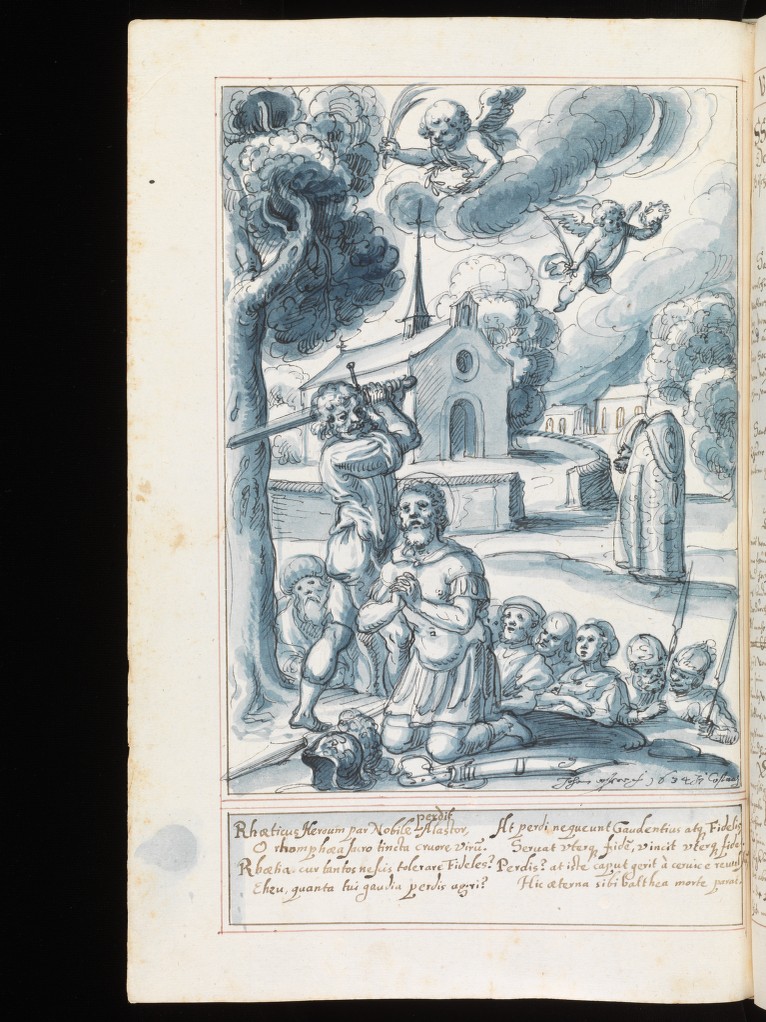 Johan 1634
Rhæticus Heroum par Nobile perdit Alastor,
O rhomphæa sacro tincta cruore virû.
Rhætia cur tantos nescis tolerare Fideles?
Eheu, quanta tui gaudia perdis agri?
At perdi nequeunt Gaudentius atq, Fidelis
Seruat vterq, fidê, vincit vterq, fide.
Perdis? at iste caput gerit à ceruice reuulsû
Hic æterna sibi balthea morte parat.